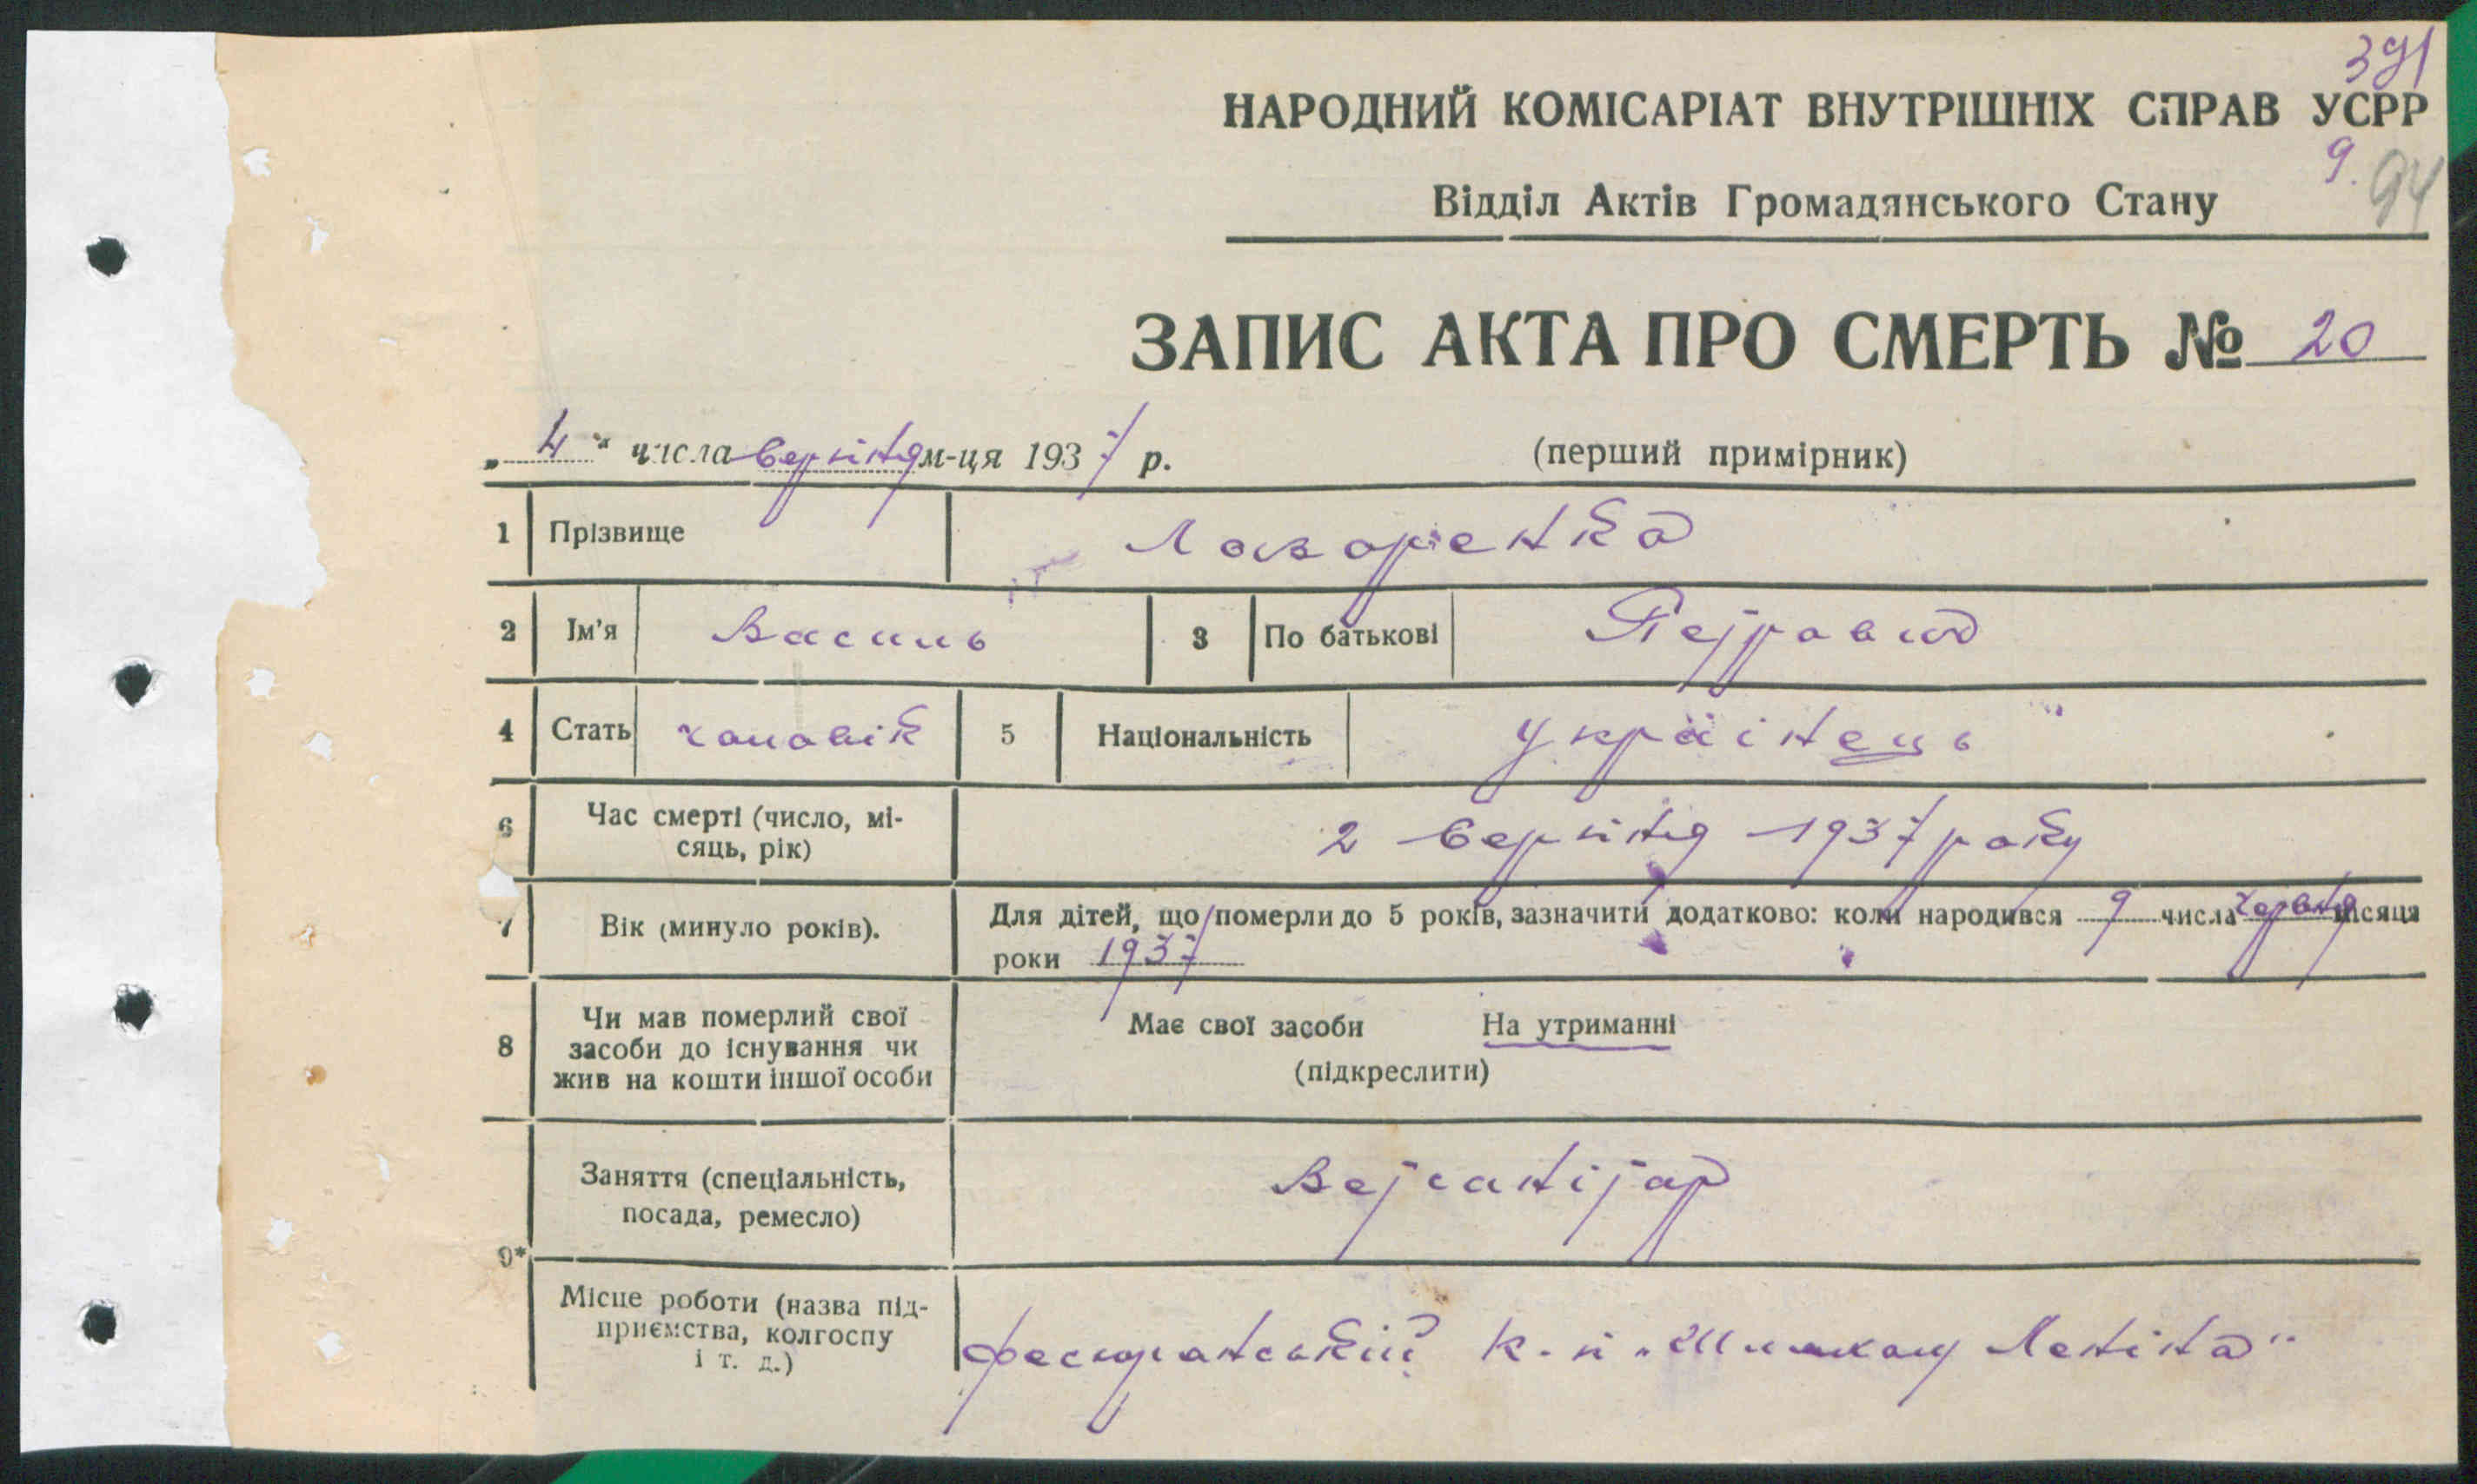 391
НАРОДНИЙ КОМІСАРІАТ ВНУТРІШНІХ СПРАВ УСРР
9. 94
Відділ Актів Громадянського Стану
ЗАПИС АКТА ПРО СМЕРТЬ № 20
„4“ числа версітня м-ця 1937 р. (перший примірник)
1 Прізвище Лазаренко
2 Ім'я Василь 3 По батькові Петрович
4 Стать чоловік 5 Національність Українець
6 Час смерті (число, мі-
сяць, рік) 2 версітня 1937 року
7 Вік (минуло років). Для дітей, що померли до 5 років, зазначити додатково: коли народився 9 числа червня місяця
роки 1937
8 Чи мав померлий свої
засоби до існування чи
жив на кошти іншої особи
Має свої засоби На утриманні
(підкреслити)
Заняття (спеціальність,
посада, ремесло) Ветсанітар
9*
Місце роботи (назва під-
приємства, колгоспу
і т. д.) к. п „Шляхом Леніна“